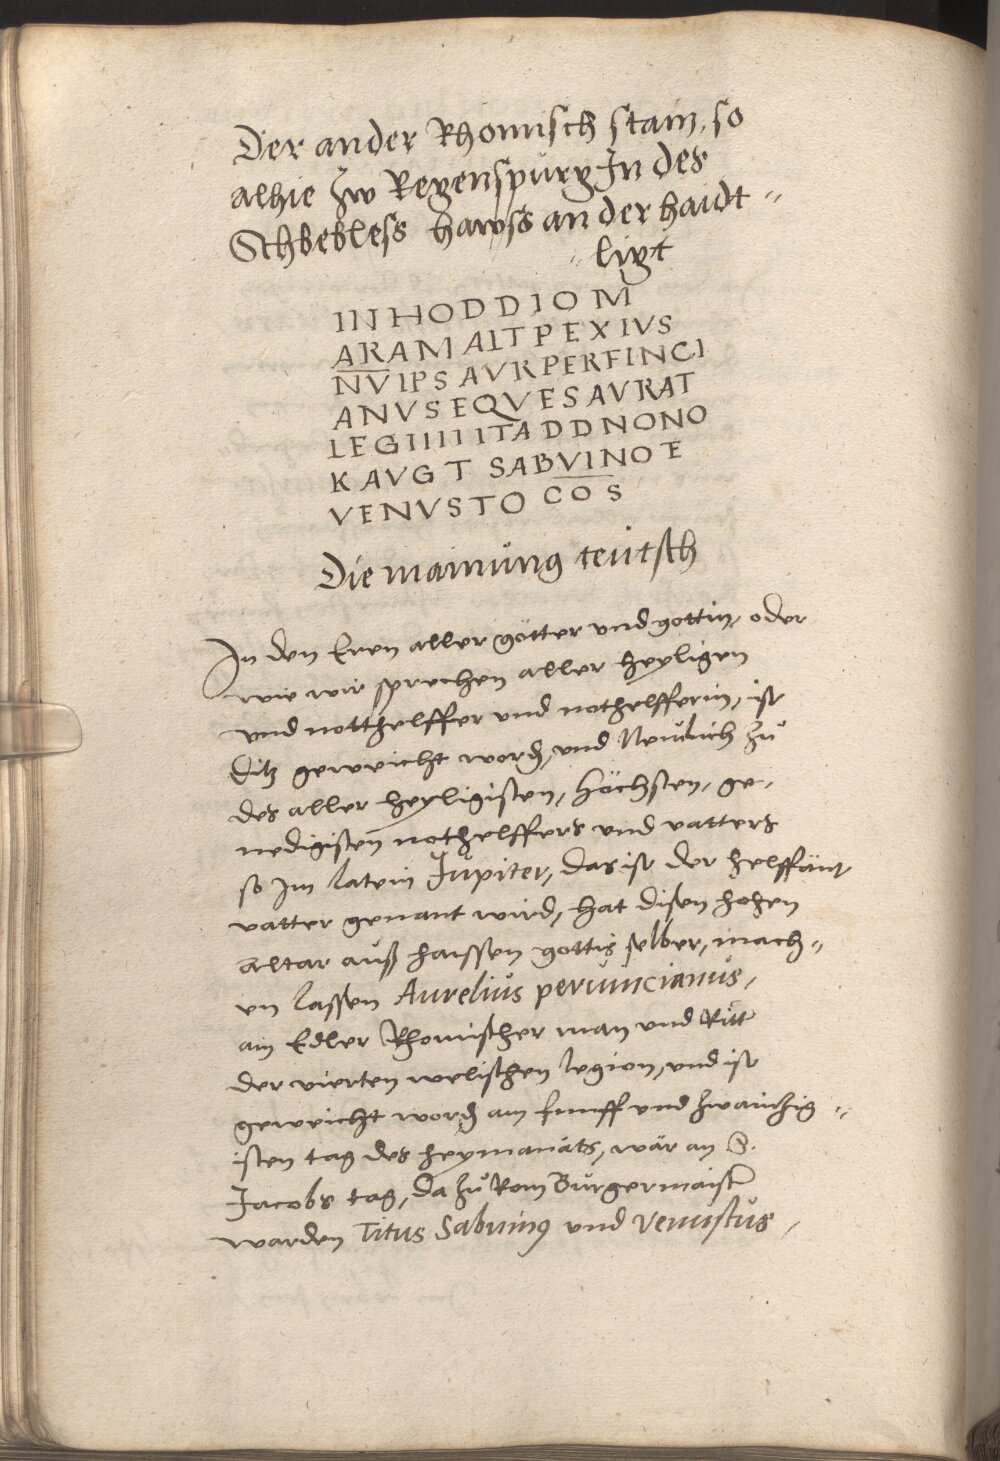 Der ander Rhomisch stain, so
alhie zw Regenspurg In des
Schbebless hawss an der haidt
ligt
IIN HODDIOM
ARAM ALT PEXIVS
NVIPS AVR PERFINCI
ANVS EQVES AVRAT
LEGIIIII ITA DD NONO
K AVG T SABVINO E
VENVSTO COS
Die mainung teutsch
In den Eren aller götter vnd gottin, oder
wie wir sprechen aller heyligen
vnd notthelffer vnd nothelfferin, ist
ditz geweicht word, vnd Neulich zu
des aller heyligisten, höchsten, ge,
nedigisten nothelffers vnd vatters
so Im latein Jupiter, das ist der helffant
vatter genant wird, hat disen hohen
altar auß haissen gottis selber, mach,,
en lassen Aurelius peruincianus,
ain Edler Rhomischer man vnd Ritt
der vierten welischen legion, vnd ist
geweicht word am funff vnd zwaintzig,,
isten tag des heymanats, wär an S.
Jacobs tag, da zu Rom Burgermaist
warden Titus Sabuing vnd Venustus,